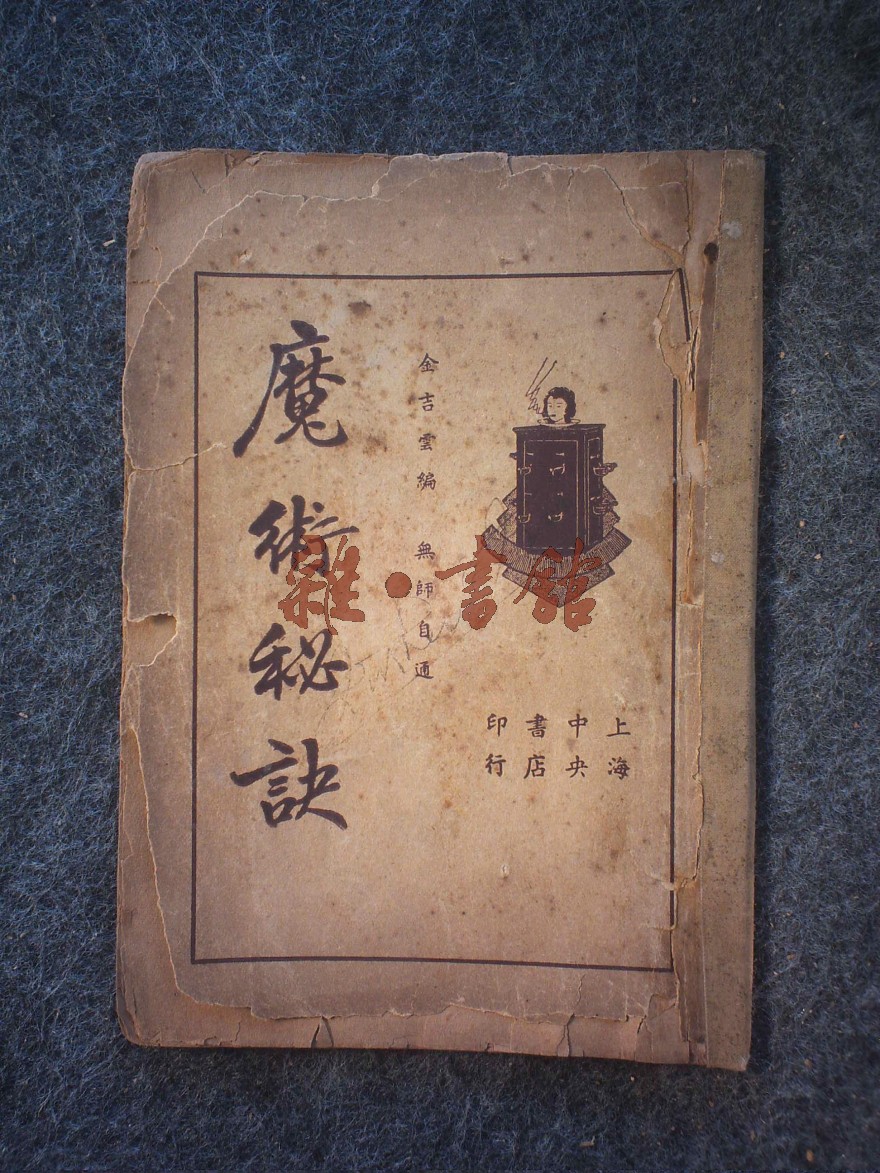 魔術秘訣
金吉雲編 無師自通
上海
中央
書店
印行
雜·書館